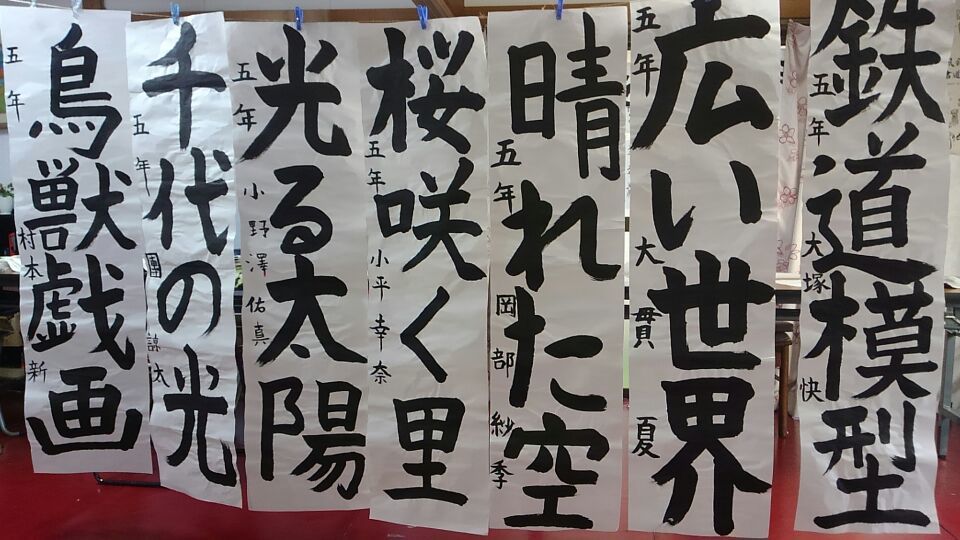 鉄道模型
五年 大塚 快
広い世界
五年 大貫 夏
晴れた空
五年 岡部 紗季
桜咲く里
五年 小平 幸奈
光る太陽
五年 小野澤 佑真
千代の光
五年 團
鳥獣戯画
五年 村本 新